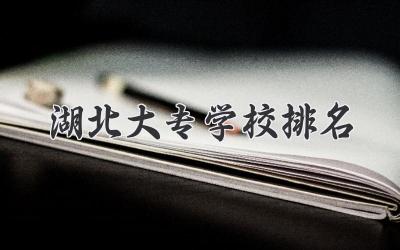 湖北大专学校排名